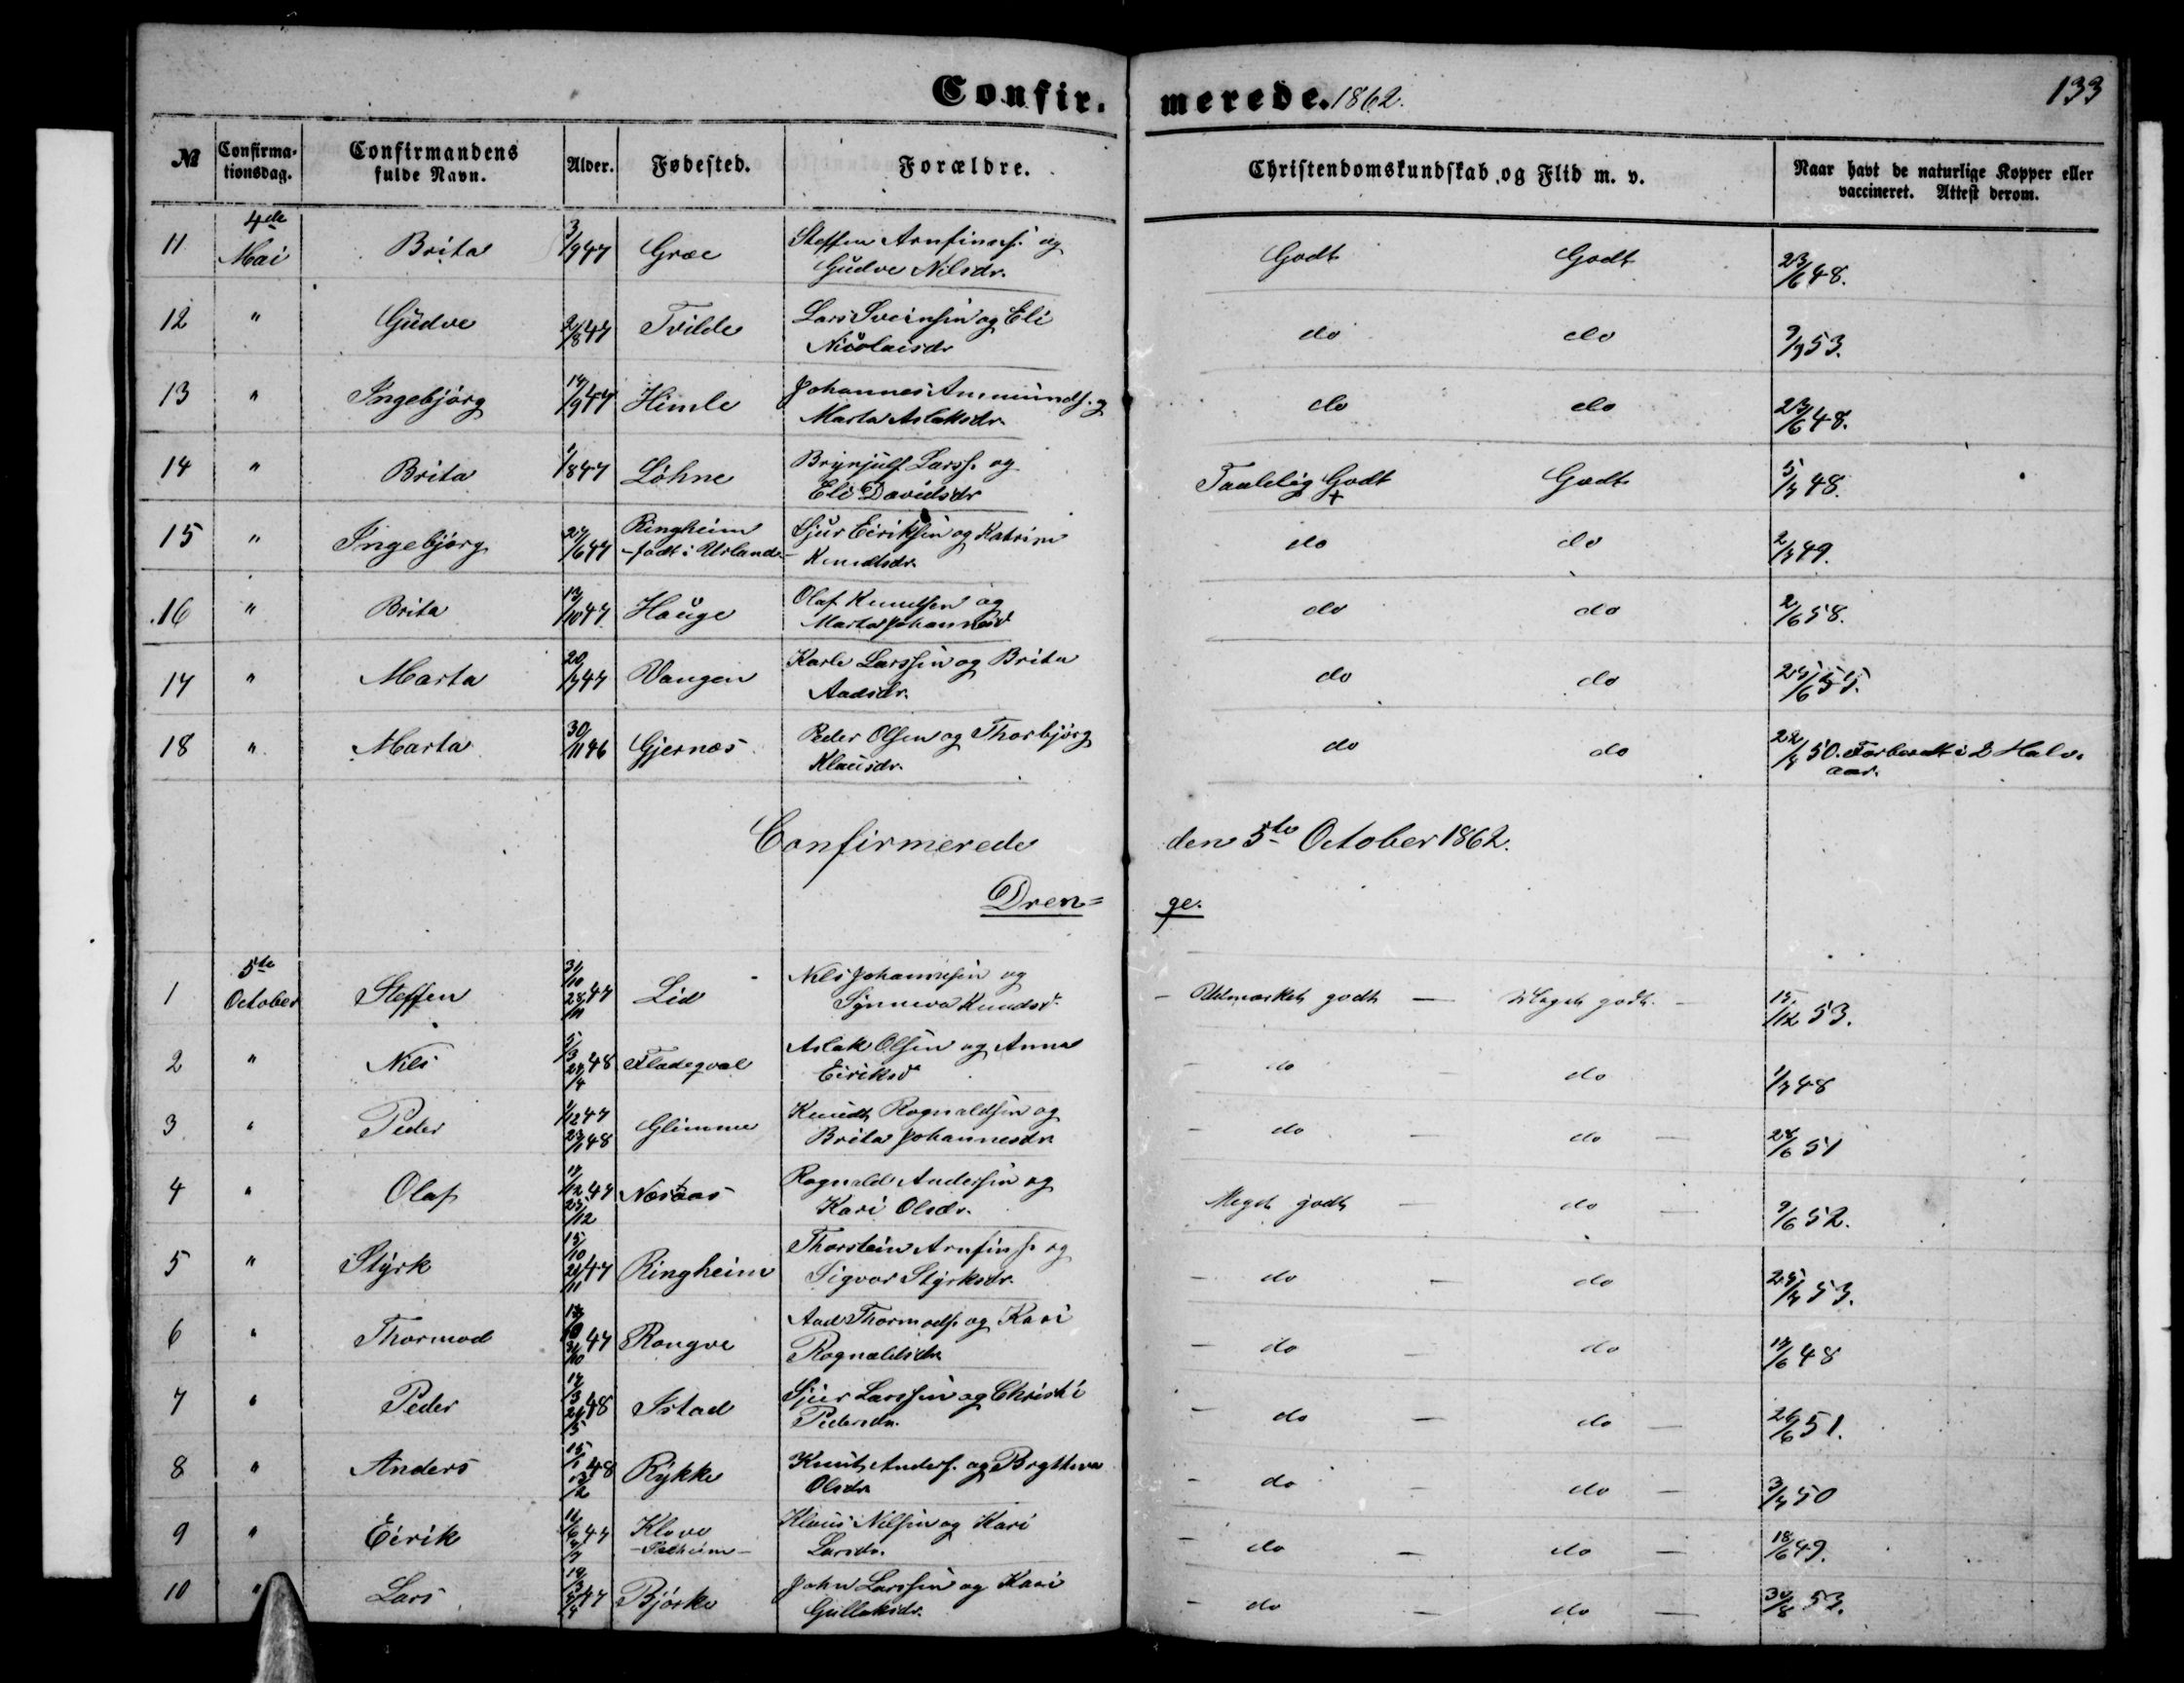 Confirmerede. 1862.
133
№ Confirmationsdag. Confirmandens fulde Navn. Alder. Fødested. Forældre. Christendomskundskab og Flid m. v. Naar havt de naturlige Kopper eller vaccineret. Attest derom.
11 4de Mai Brita 3/9 47 Græe Steffen Arnfinns. og Gudve Nilsdr. Godt Godt 23/6 48.
12 " Gudve 2/8 47 Tvilde Lars Sveinsen og Eli Nicolaisdr do do 9/9 53.
13 " Ingebjørg 14/9 47 Himle Johannes Ammunds. og Marta Aslaksdr. do do 23/6 48.
14 " Brita 1/8 47 Løhne Brynjulf Larss. og Eli Davidsdr Taalelig Godt + Godt 5/7 48.
15 " Ingebjørg 27/6 47 Ringheim - født i Urland - Sjur Eiriksen og Katrine Knudtsdr. do do 2/7 49.
16 " Brita 13/10 47 Hauge Olaf Knudsen og Marta Johannesd do do 2/6 58.
17 " Marta 20/7 47 Vangen Karle Larssen og Brita Aadsdr. do do 25/6 55.
18 " Marta 30/11 46 Gjernæs Peder Olsen og Thorbjørg Klausdr. do do 22/7 50. Forberedt i 2 Halvaar.
Confirmerede den 5te October 1862.
Drenge.
1 5te October Steffen 31/10 28/11 47 Lid Nils Johannesen og Synneva Knudsdr - Udmærket godt — Meget godt. - 15/12 53.
2 " Nils 5/3 24/4 48 Fladeqval Aslak Olsen og Anna Eiriksdr do do 1/7 48
3 " Peder 1/12 47 23/1 48 Glimme Knudt Rognaldsen og Brita Johannesdr. - do — do — 28/6 51
4 " Olaf 12/12 47 25/12 Næsaas Rognald Andersen og Kari Olsdr. Meget godt — do — 9/6 52.
5 " Styrk 15/10 21/11 47 Ringheim Thorstein Arnfins. og Sigvor Styrksdr. - do — do 25/7 53.
6 " Thormod 17/10 31/10 47 Rongve Aad Thormods. og Kari Rognaldsdr. - do — do 17/6 48
7 " Peder 17/3 21/5 48 Istad Sjur Larssen og Christi Pedersdr. - do — do — 26/6 51.
8 " Anders 15/1 13/2 48 Rykke Knut Anders. og Brytteva Olsdr. - do — do — 3/7 50
9 " Eirik 11/6 4/7 47 Klove Klaus Nilsen og Kari Larsdr. - do — do — 18/6 49.
10 " Lars 19/3 4/4 47 Bjørke John Larssen og Kari Gullaksdr. - do — do — 30/8 53.